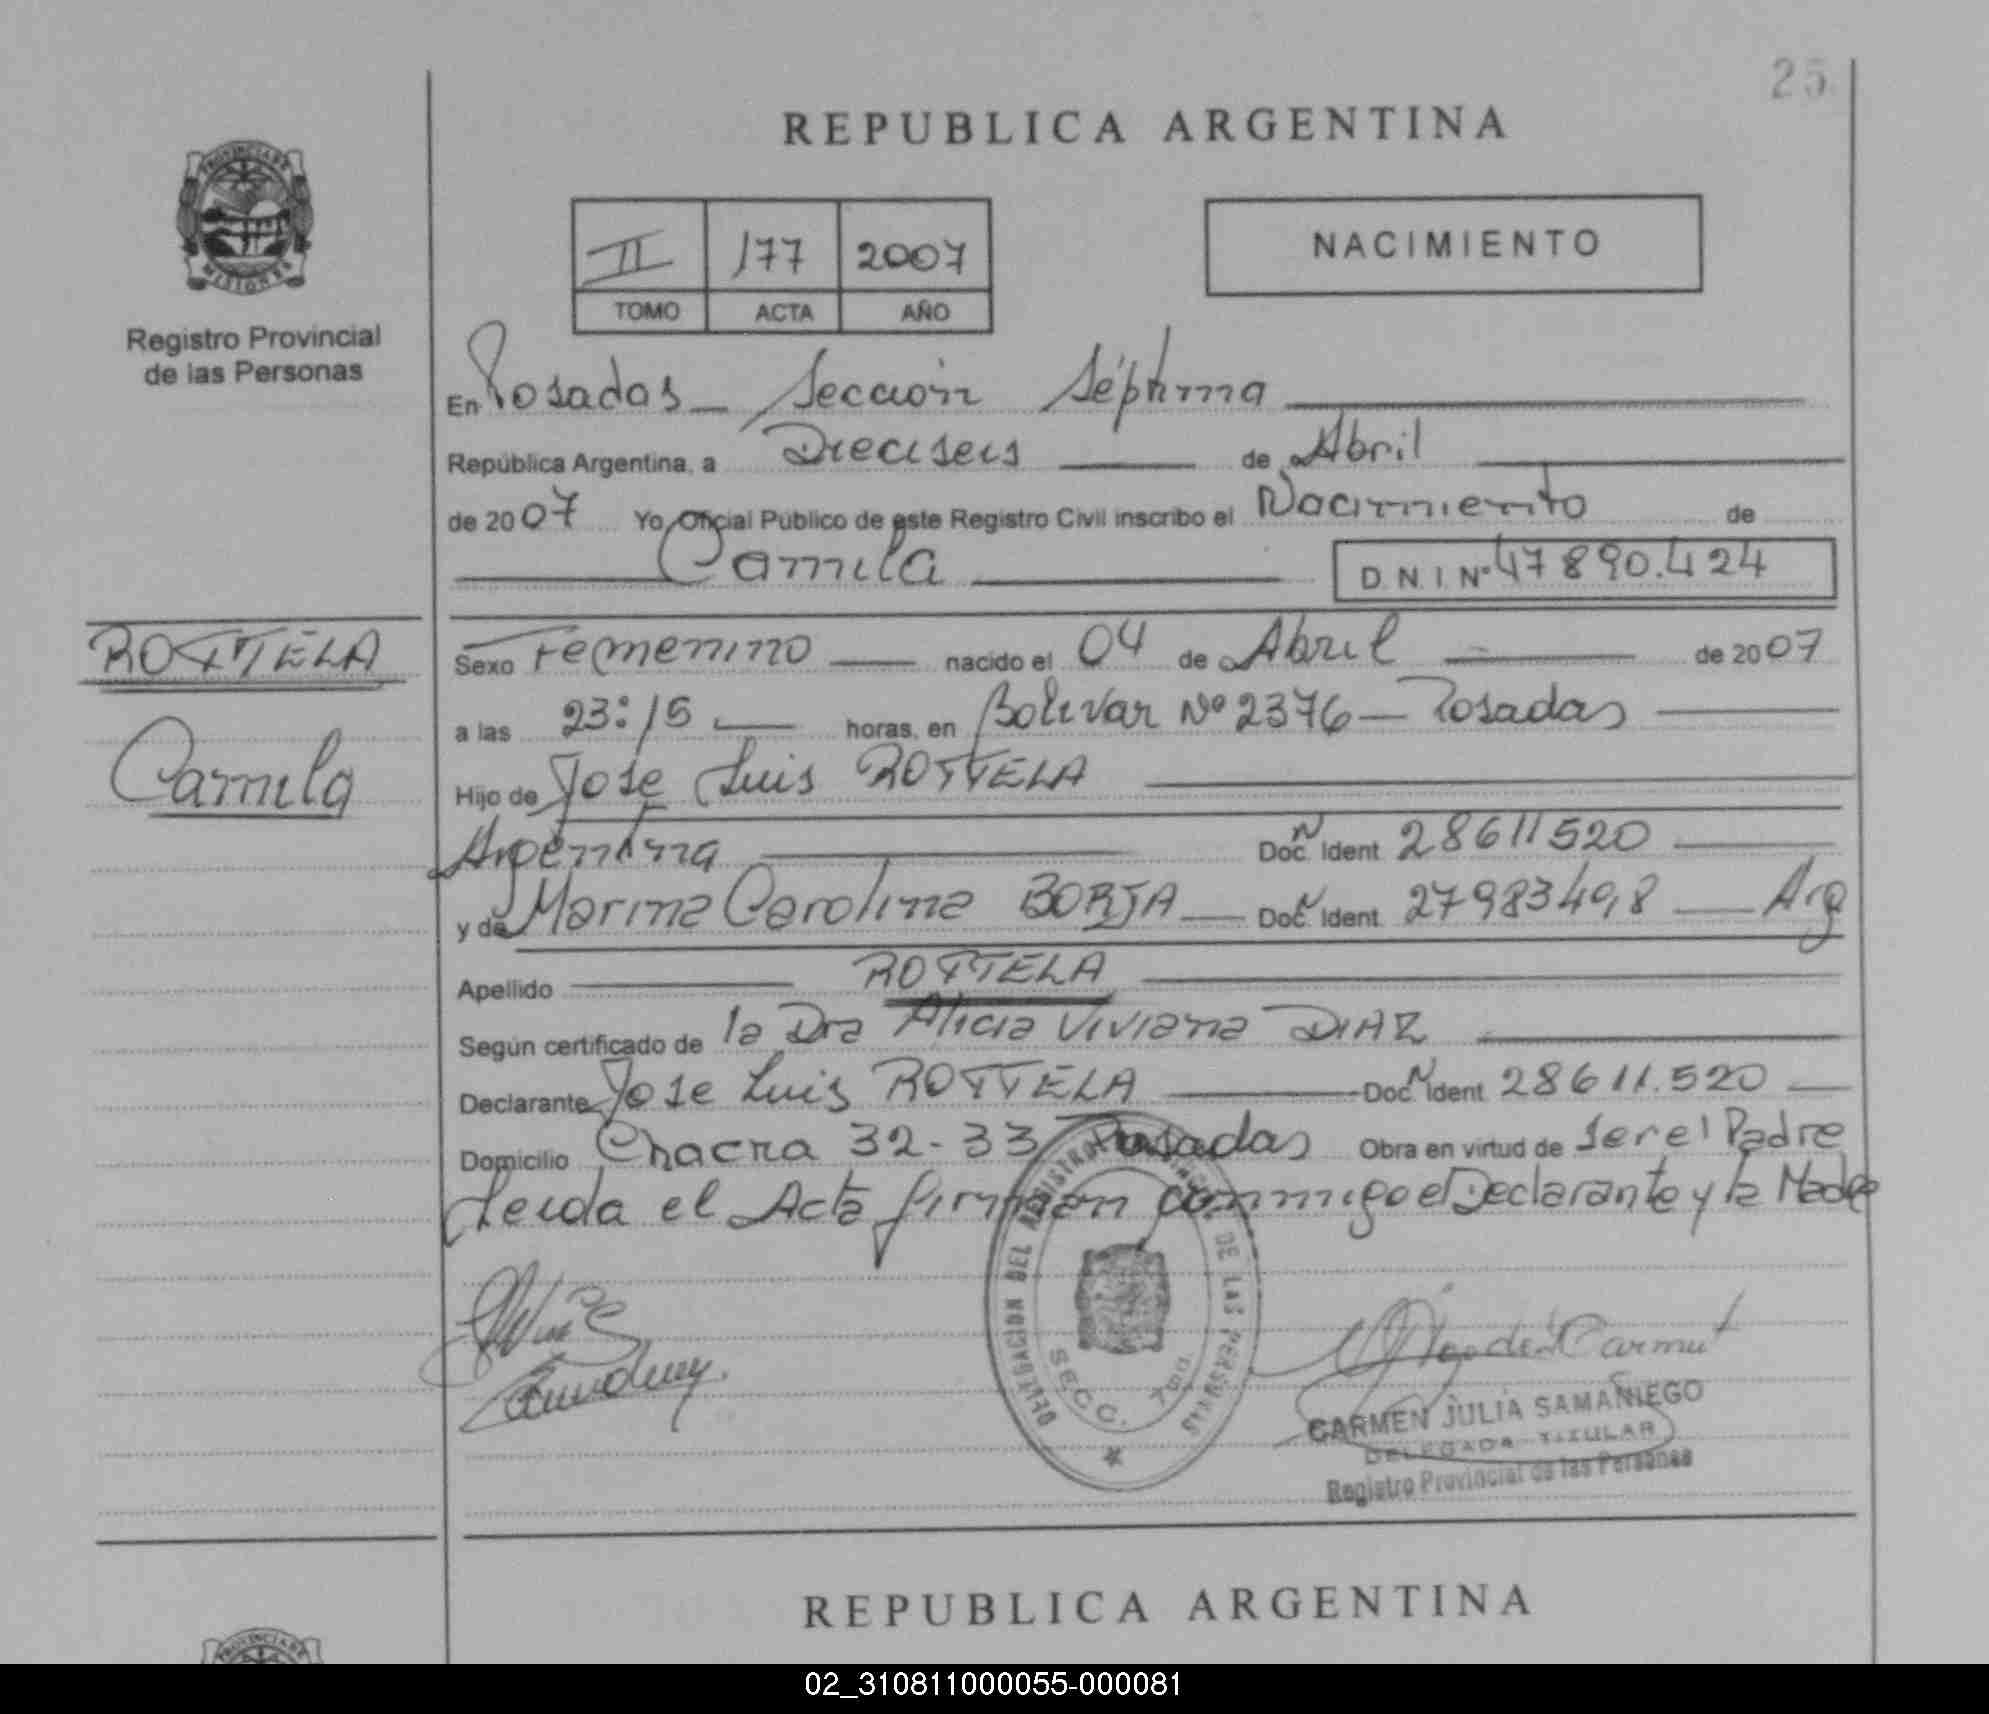 25
REPUBLICA ARGENTINA
PROVINCIA DE
MISIONES
Registro Provincial
de las Personas
II 177 2007
TOMO ACTA AÑO
NACIMIENTO
En Posadas Sección Séptima
República Argentina, a Dieciseis de Abril
de 2007 Yo Oficial Público de este Registro Civil inscribo el Nacimiento de
Camila D.N.I. Nº 47890.424
ROTTELA
Camila
Sexo Femenino nacido el 04 de Abril de 2007
a las 23:15 horas, en Bolivar Nº 2376 - Posadas
Hijo de Jose Luis ROTTELA
Argentina Doc. Ident 28611520
y de Marina Carolina BORJA Doc. Ident. 27983498 Arg
Apellido ROTTELA
Según certificado de la Dra Alicia Viviana DIAZ
Declarante Jose Luis ROTTELA Doc. Ident 28611.520
Domicilio Chacra 32-33 Posadas Obra en virtud de ser el Padre
Leida el Acta firman conmigo el Declarante y la Madre
DELEGACION DEL REGISTRO PROVINCIAL DE LAS PERSONAS
SECC. 7ma
CARMEN JULIA SAMANIEGO
DELEGADA TITULAR
Registro Provincial de las Personas
REPUBLICA ARGENTINA
PROVINCIA DE
02_310811000055-000081